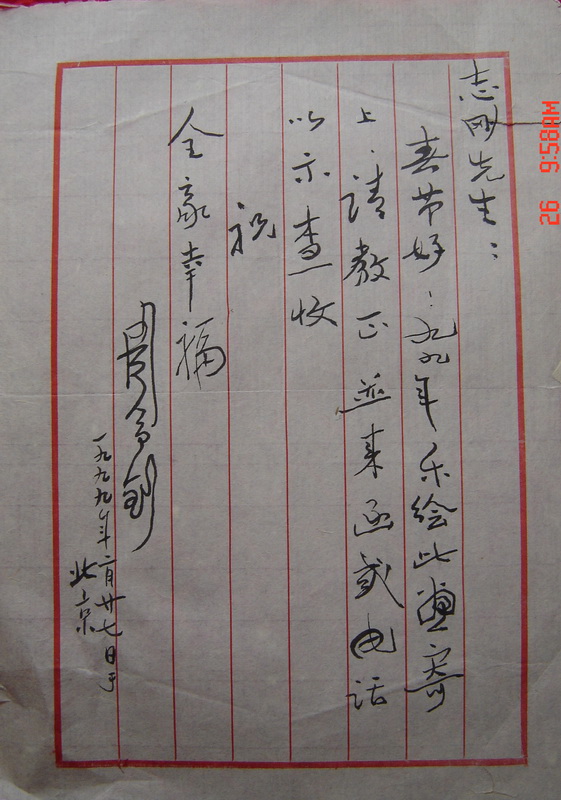 志刚先生：
春节好！九九年 绘此 寄
上．请教正并来函或电话
以示查收
祝
全家幸福
周
一九九九年二月廿七日于
北京
26 9:58AM